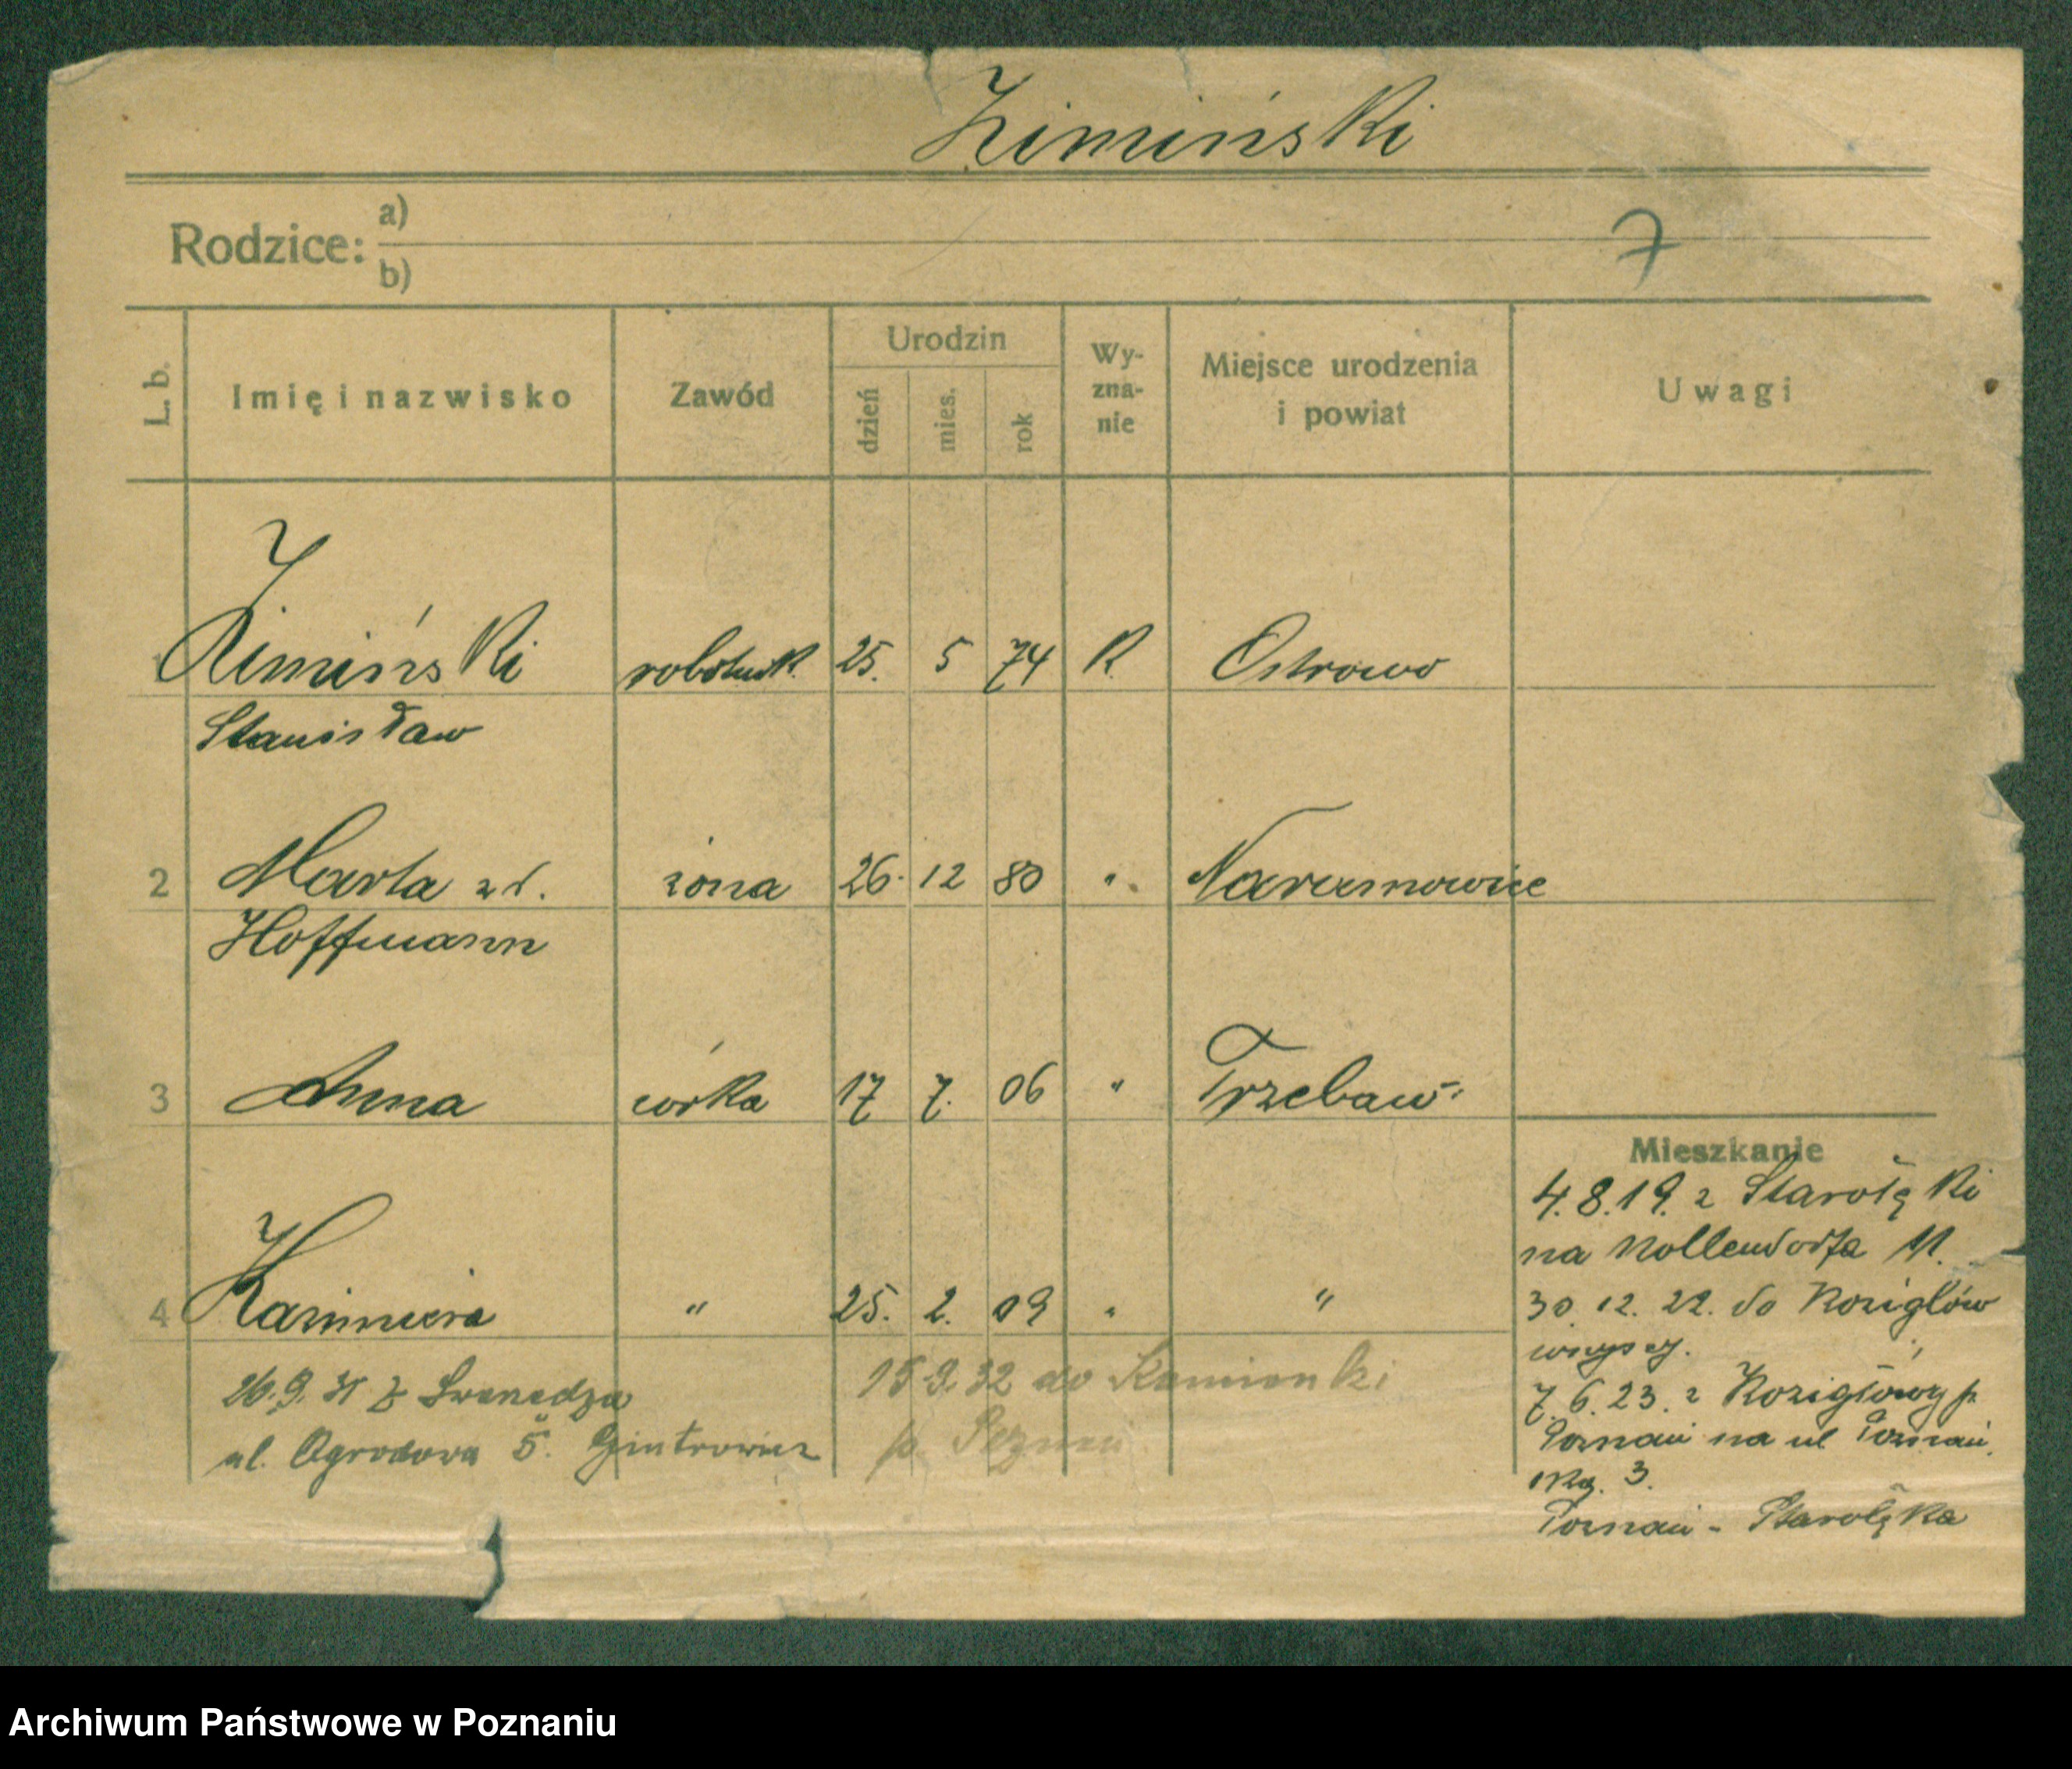 Zimiński
7
Rodzice: a)
b)
L. b. Imię i nazwisko Zawód Urodzin dzień mies. rok Wy-zna-nie Miejsce urodzenia i powiat Uwagi
1 Zimiński robotnik. 25. 5 74 K. Ostrowo
Stanisław
2 Marta zd. żona 26. 12 80 " Naramowice
Hoffmann
3 Anna córka 17 7. 06 " Trzebaw.
4 Kazimiera " 25. 2. 09 " "
Mieszkanie
4.8.19. z Starołęki
na Kollendorfa 11.
30. 12. 22. do Koziegłów
7. 6. 23. z Koziegłowy p.
Poznań na ul Poznań.
ska. 3.
Poznań - Starołęka
26.9.31 z Swarzędza
ul. Ogrodowa 5.
15.9.32 do Kamionki
p.
Archiwum Państwowe w Poznaniu